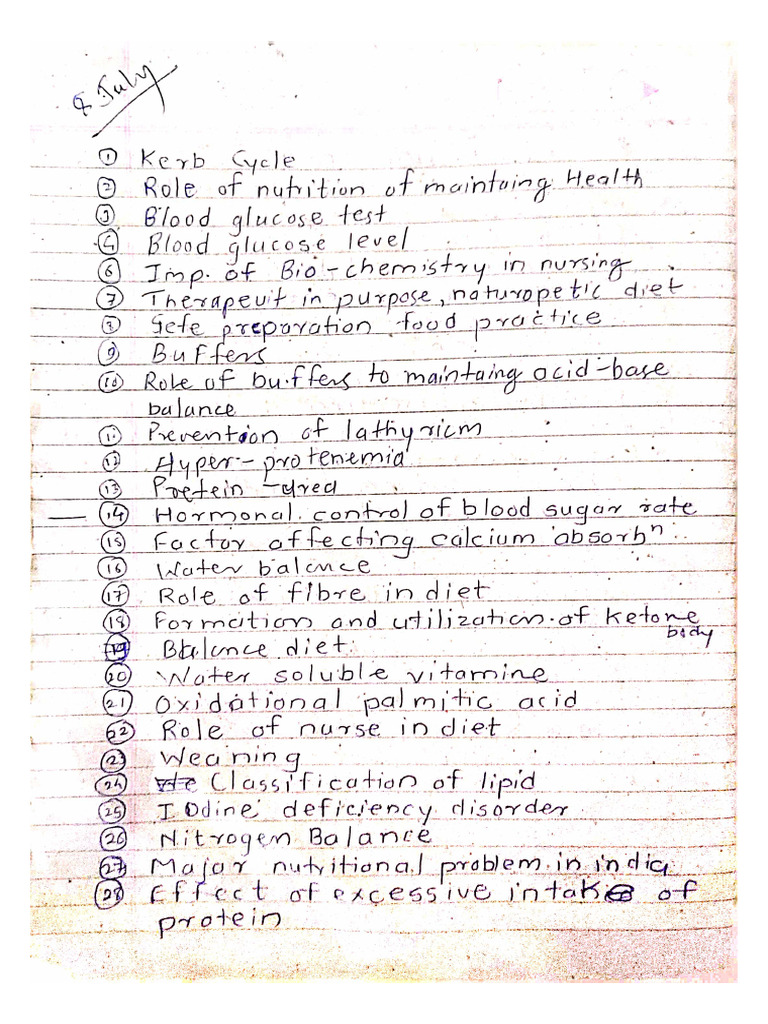 8 July
① Kerb Cycle
② Role of nutrition of maintaing Health
③ Blood glucose test
④ Blood glucose level
⑥ Imp. of Bio-chemistry in nursing
⑦ Therapeut in purpose, naturopetic diet
⑧ Sefe preparation food practice
⑨ Buffers
⑩ Role of buffers to maintaing acid-base
balance
⑪ Prevention of lathyricm
⑫ Hyper-protenemia
⑬ Protein-urea
⑭ Hormonal control of blood sugar rate
⑮ Factor affecting calcium absorbⁿ
⑯ Water balance
⑰ Role of fibre in diet
⑱ Formation and utilization of Ketone
body
⑲ Balance diet
⑳ Water soluble vitamine
㉑ Oxidational palmitic acid
㉒ Role of nurse in diet
㉓ Weaning
㉔ Classification of lipid
㉕ Iodine deficiency disorder
㉖ Nitrogen Balance
㉗ Major nutritional problem in india
㉘ Effect of excessive intake of
protein